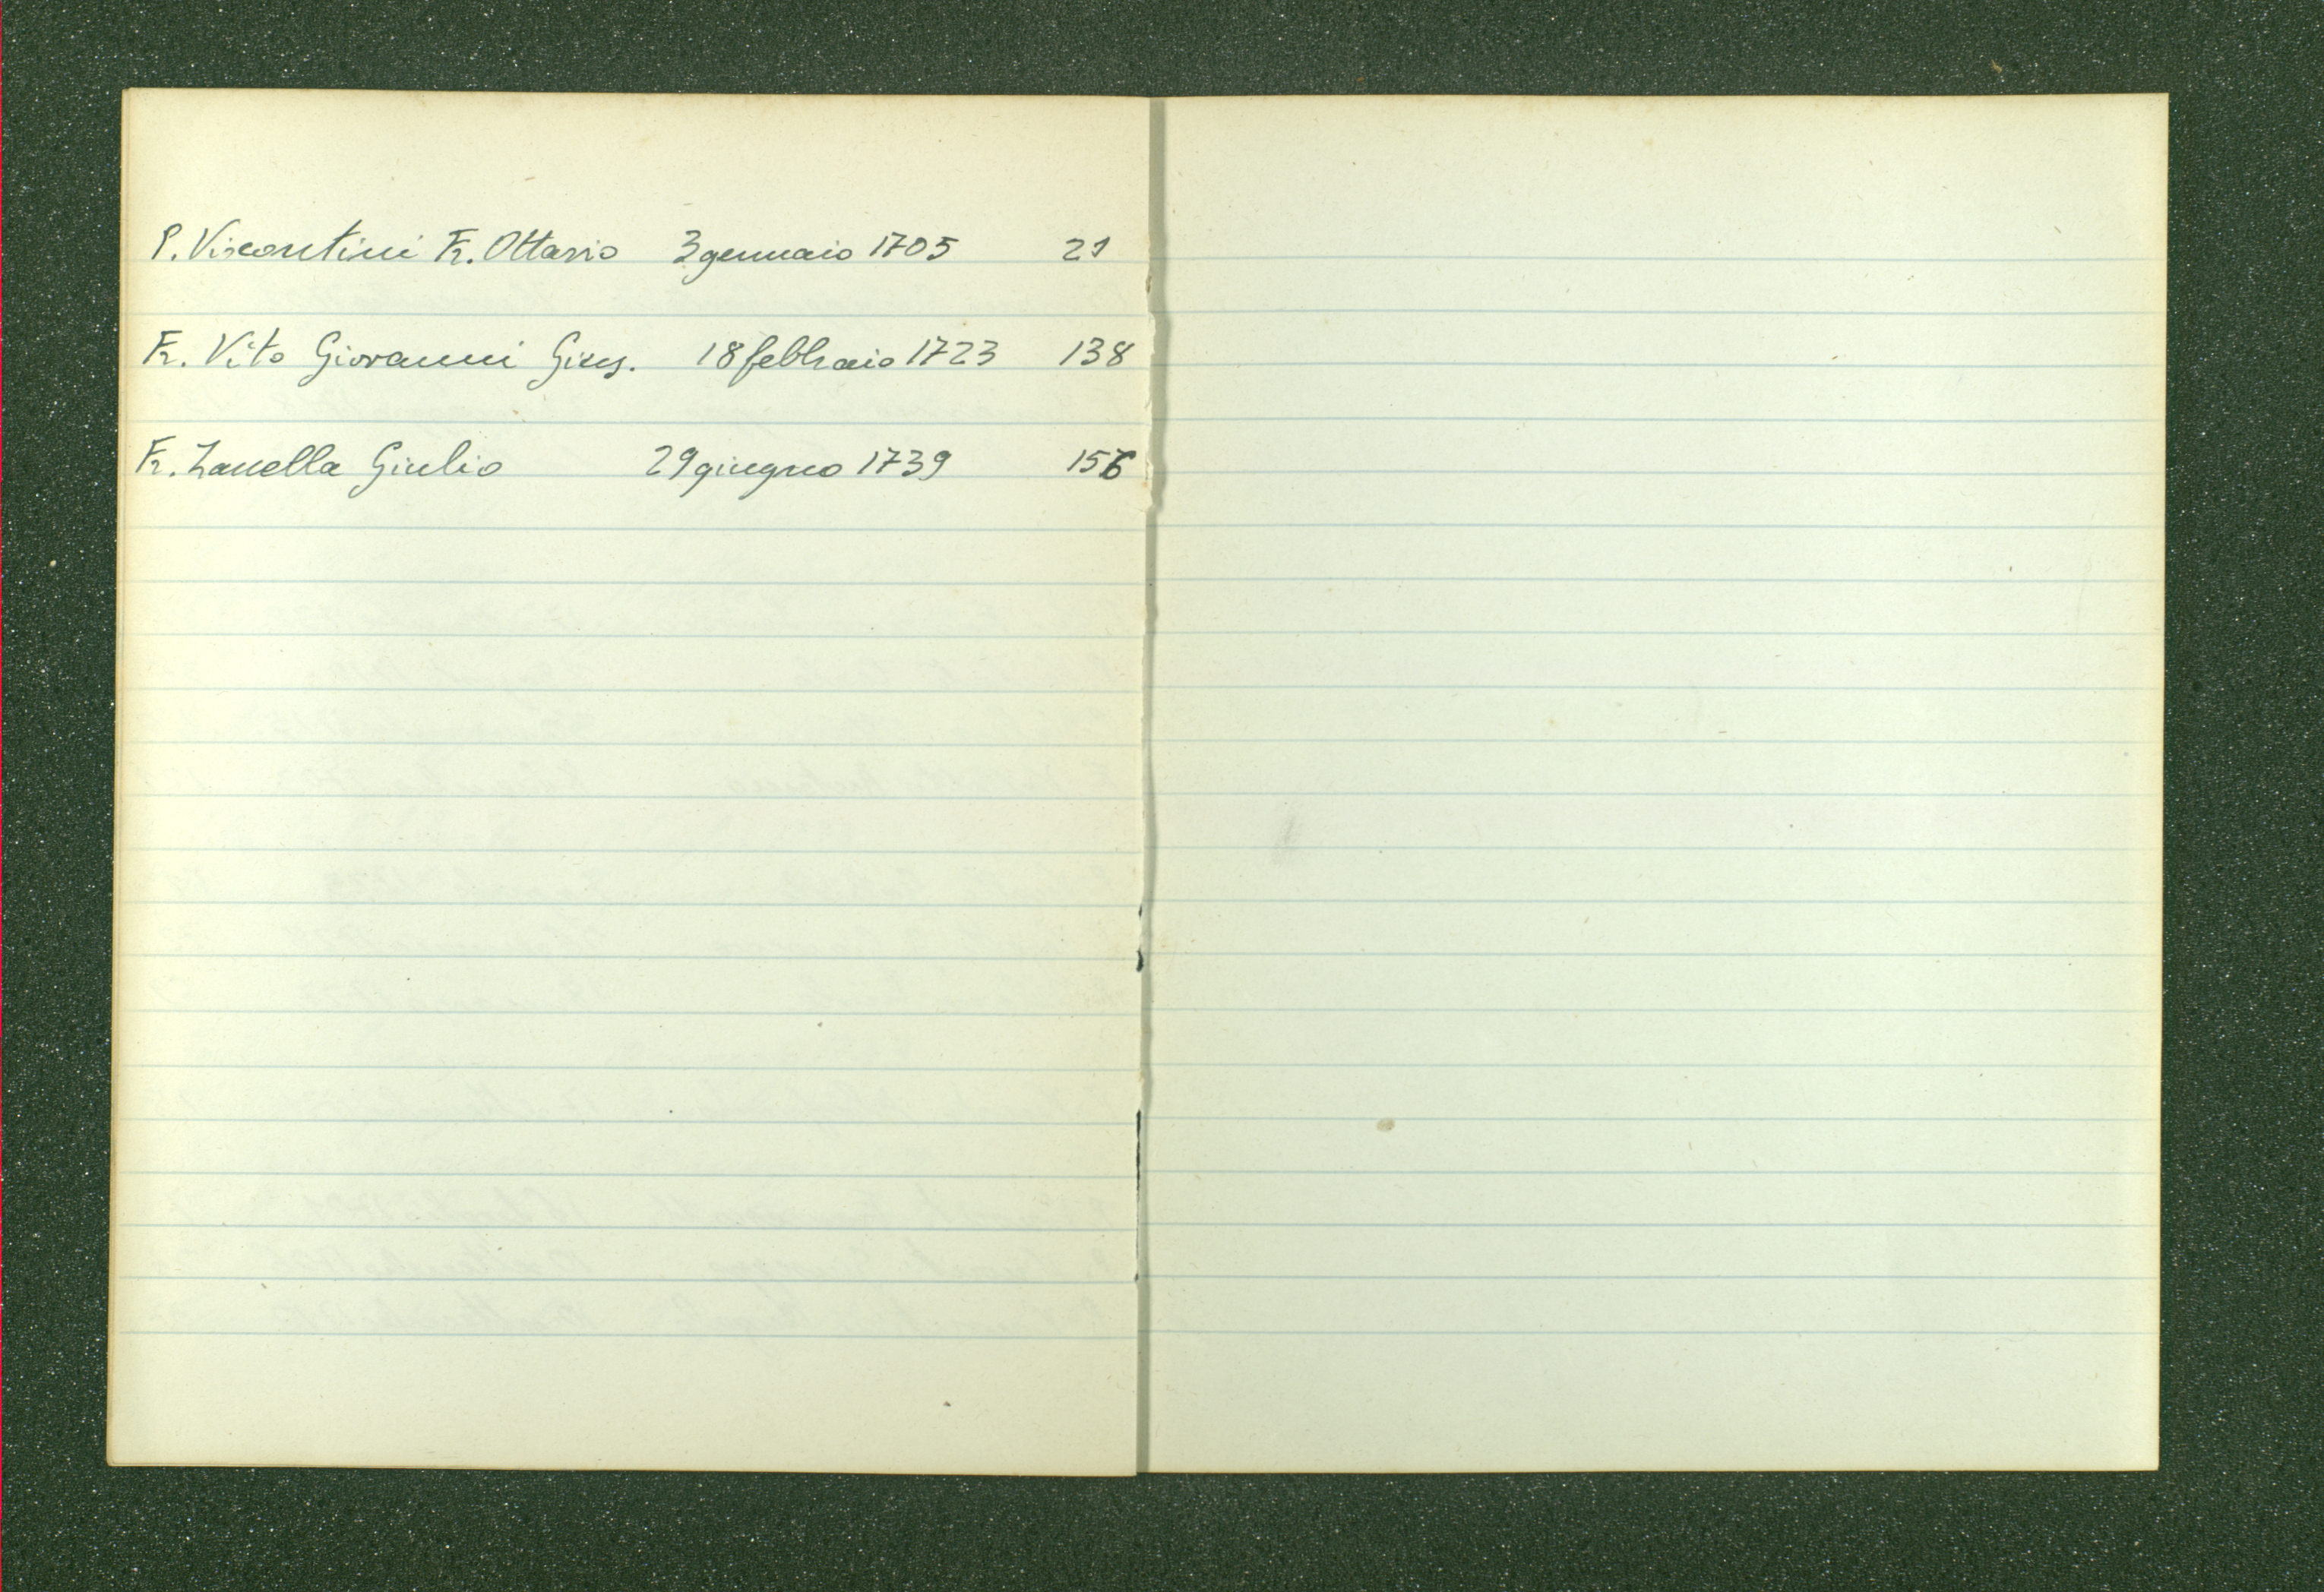 P. Viscontini Fr. Ottavio 3 gennaio 1705 21
Fr. Vito Giovanni Gius. 18 febbraio 1723 138
Fr. Zanella Giulio 29 giugno 1739 156